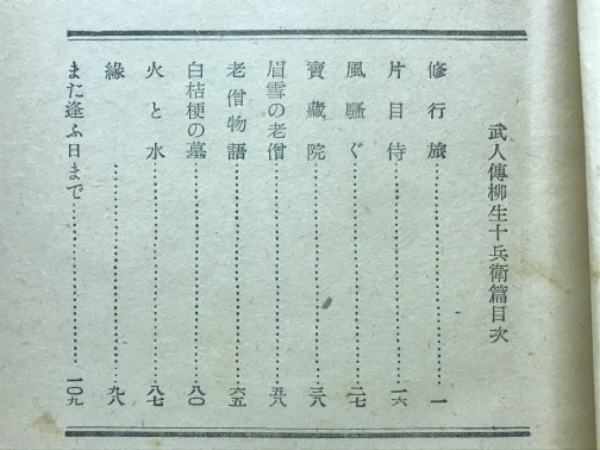 武人傳柳生十兵衛篇目次
修行旅…………一
片目侍…………一六
風騒ぐ…………二七
寶藏院…………三八
眉雪の老僧…………五八
老僧物語…………六五
白桔梗の墓…………八〇
火と水…………八七
緣…………九八
また逢ふ日まで…………一〇九